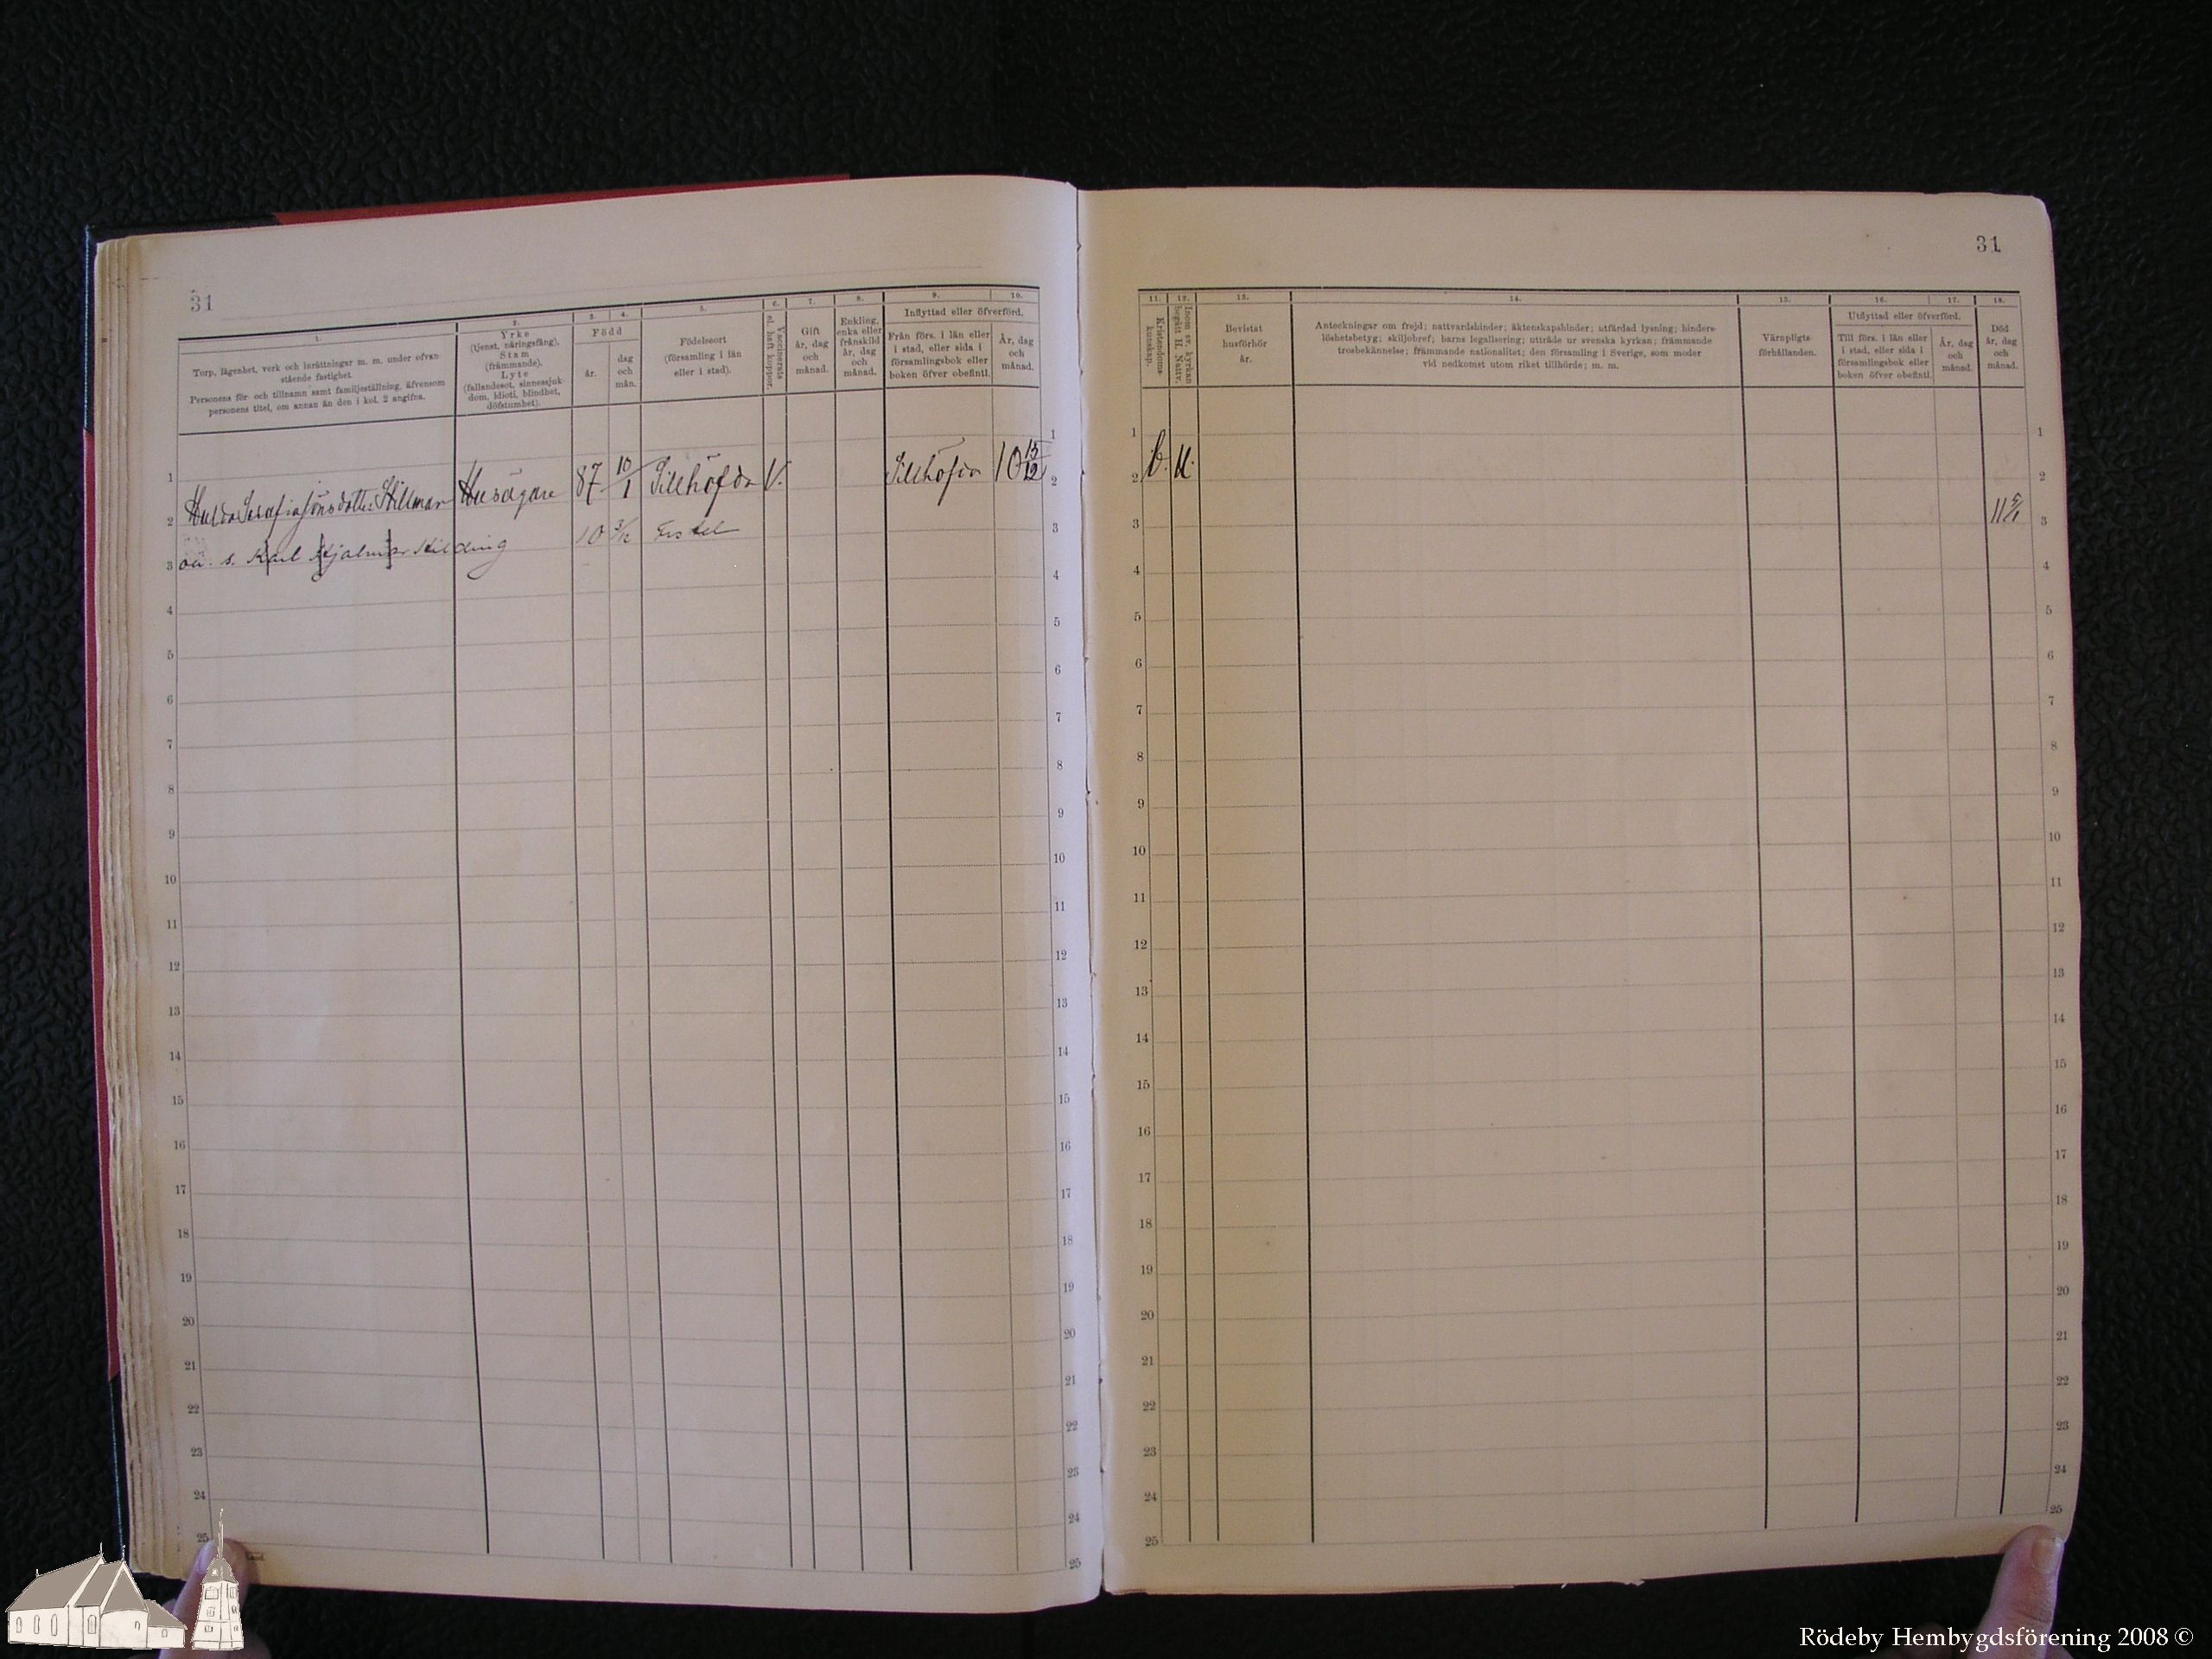 31
1. 2. 3. 4. 5. 6. 7. 8. 9. 10.
Torp, lägenhet, verk och inrättningar m. m. under ofvan
stående fastighet.
Personens för- och tillnamn samt familjeställning, äfvensom
personens titel, om annan än den i kol. 2 angifna.
Yrke
(tjenst, näringsfång),
Stam
(främmande),
Lyte
(fallandesot, sinnessjuk-
dom, idioti, blindhet,
döfstumhet).
Född
år.
dag
och
mån.
Födelseort
(församling i län
eller i stad).
Vaccinerats
el. haft koppor.
Gift
år, dag
och
månad.
Enkling,
enka eller
frånskild
år, dag
och
månad.
Inflyttad eller öfverförd.
Från förs. i län eller
i stad, eller sida i
församlingsbok eller
boken öfver obefintl.
År, dag
och
månad.
Hulda Serafia Jönsdotter Stillman Husägare 87 10/1 Sillhöfda V. Sillhöfda 10 15/12
oä. s. Karl Hjalmar Hilding 10 3/12
1
2
3
4
5
6
7
8
9
10
11
12
13
14
15
16
17
18
19
20
21
22
23
24
25
31
11. 12. 13. 14. 15. 16. 17. 18.
Kristendoms
kunskap.
Inom sv. kyrkan
begått H. Nattv.
Bevistat
husförhör
år.
Anteckningar om frejd; nattvardshinder; äktenskapshinder; utfärdad lysning; hinders-
löshetsbetyg; skiljobref; barns legalisering; utträde ur svenska kyrkan; främmande
trosbekännelse; främmande nationalitet; den församling i Sverige, som moder
vid nedkomst utom riket tillhörde; m. m.
Värnpligts-
förhållanden.
Utflyttad eller öfverförd.
Till förs. i län eller
i stad, eller sida i
församlingsbok eller
boken öfver obefintl.
År, dag
och
månad.
Död
år, dag
och
månad.
b. u.
11 5/1
1
2
3
4
5
6
7
8
9
10
11
12
13
14
15
16
17
18
19
20
21
22
23
24
25
Rödeby Hembygdsförening 2008 ©